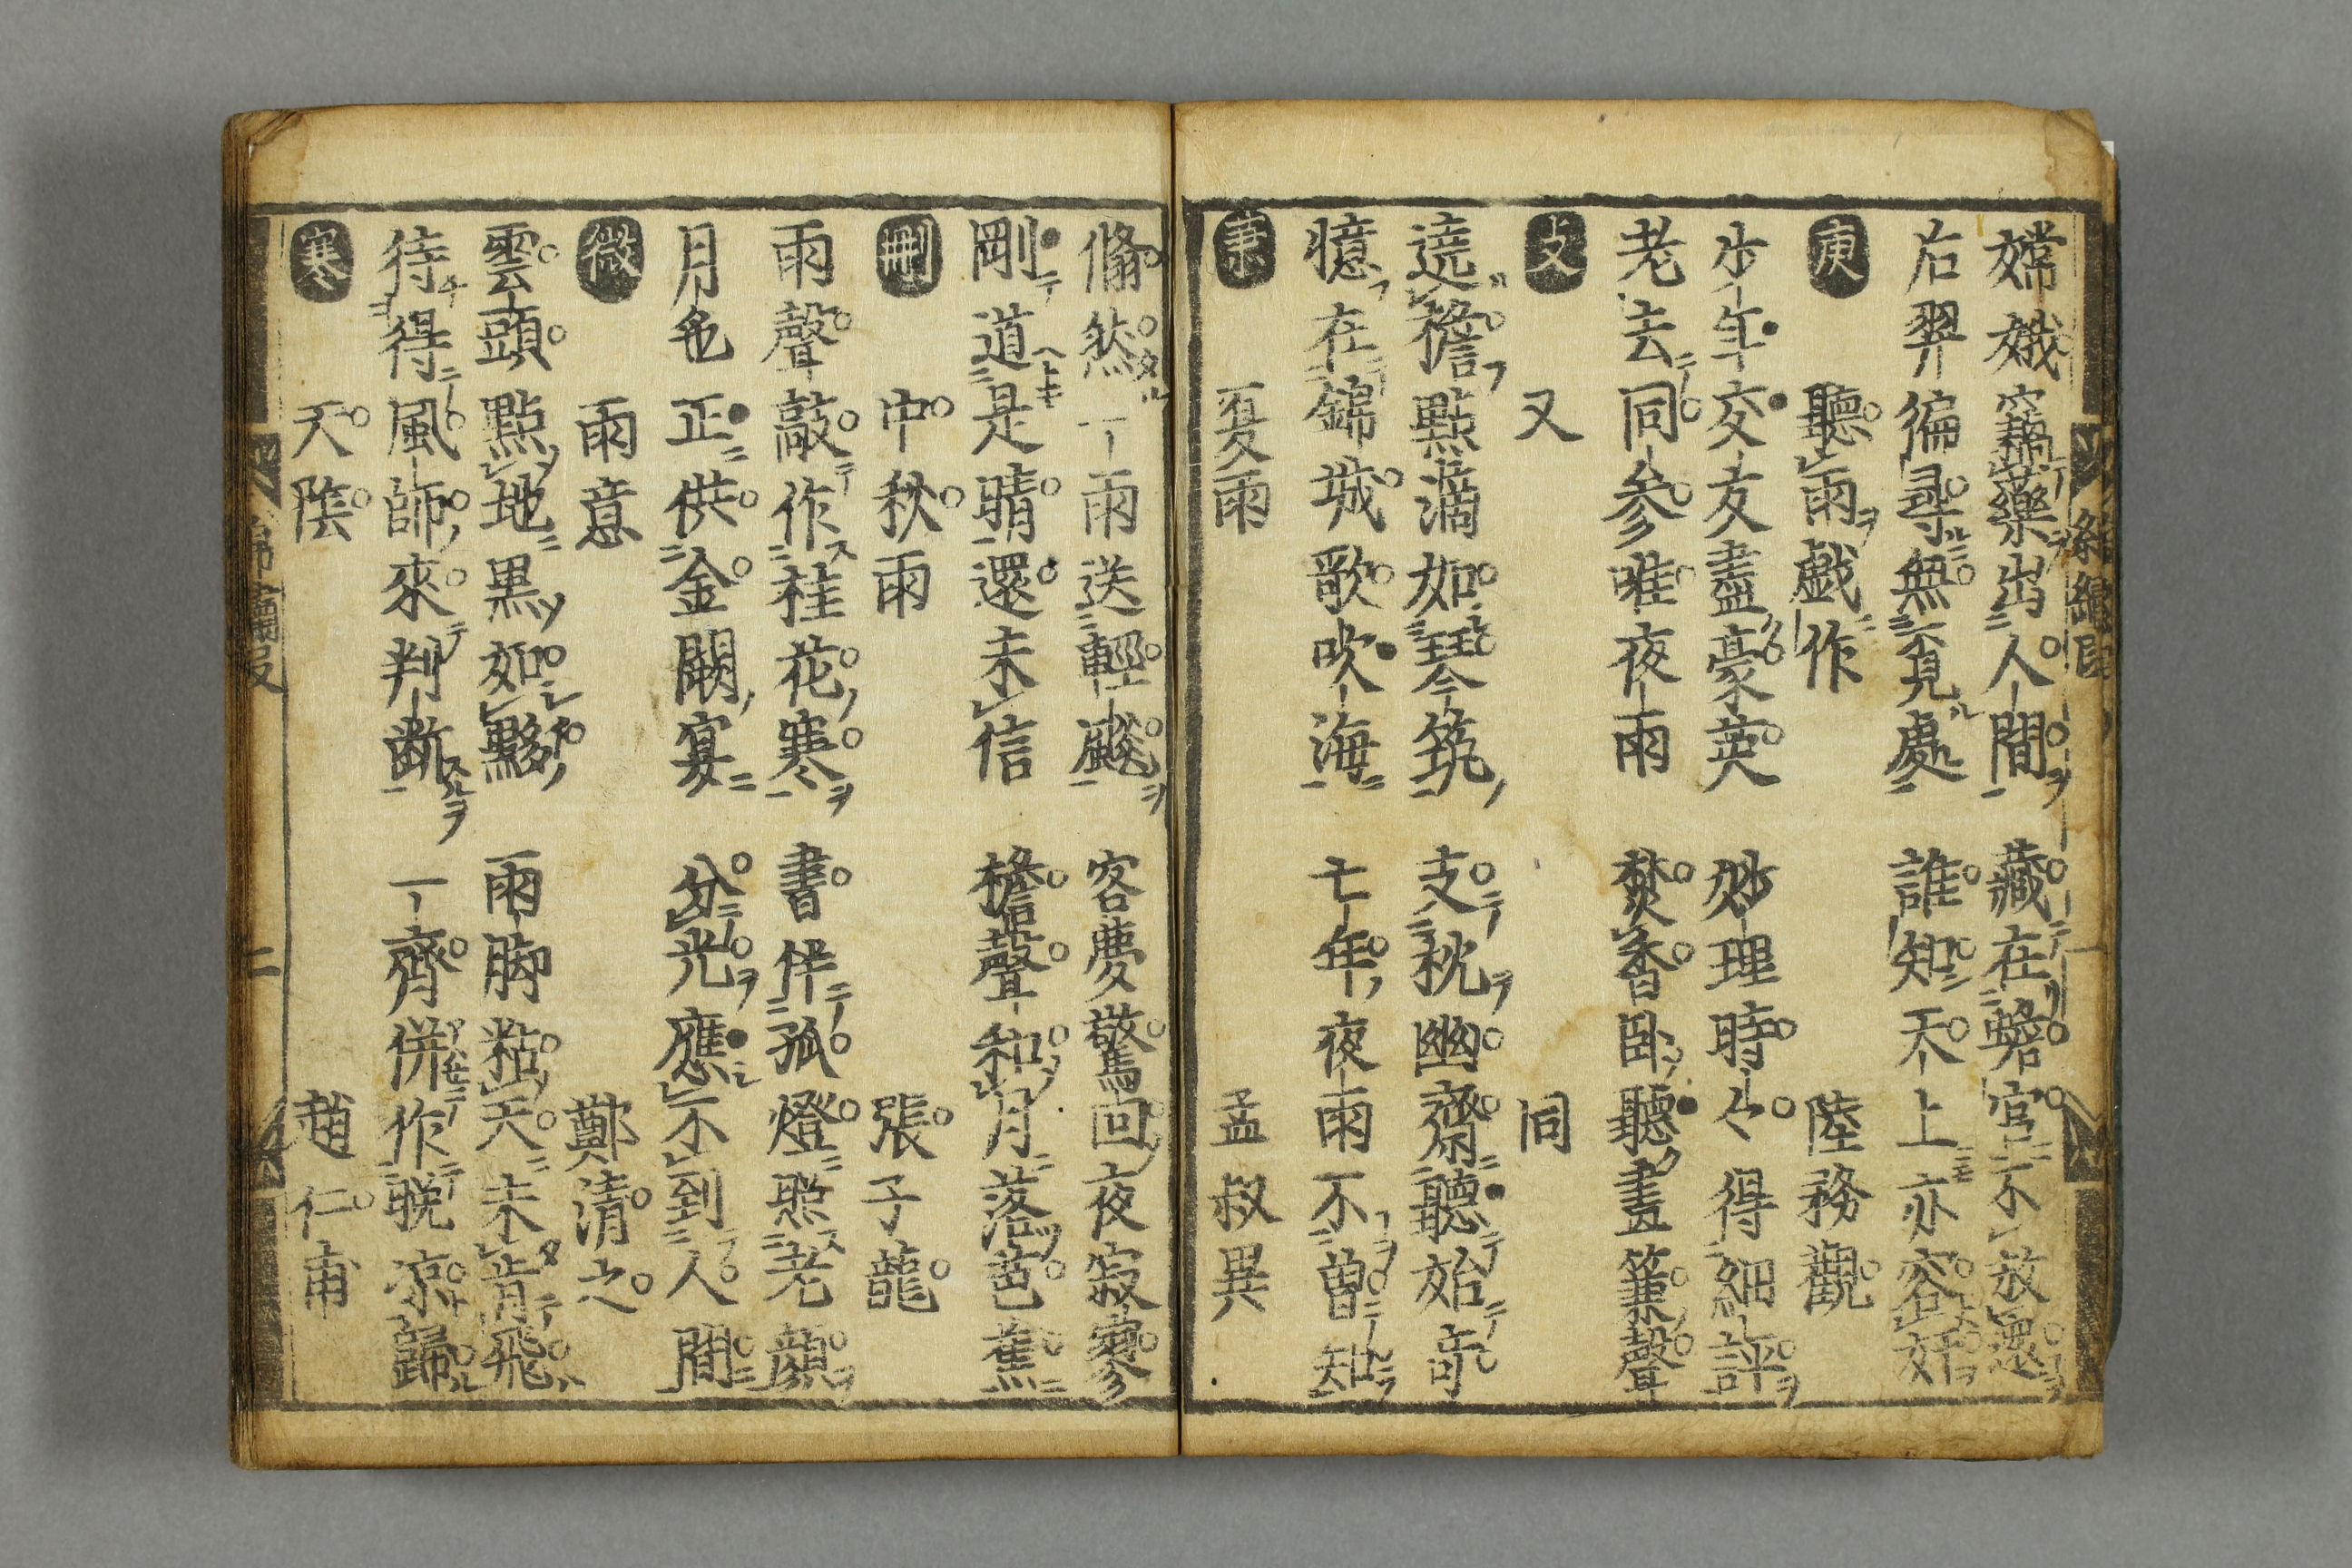 嫦娥竊藥出人間　藏在蟾宮不放還
后羿徧尋無覓處　誰知天上亦容奸
庚　聽雨戲作　陸務觀
少年交友盡豪英　妙理時〻得細評
老去同參唯夜雨　焚香臥聽畫簾聲
支　又　同
遶檐點滴如琴筑　支枕幽齋聽始奇
憶在錦城歌吹海　七年夜雨不曾知
蕭　夏雨　孟叔異
翛然一雨送輕飈　客夢驚回夜寂寥
剛道是晴還未信　檐聲和月落芭蕉
刪　中秋雨　張子龍
雨聲敲作桂花寒　書伴孤燈照老顏
月色正供金闕宴　分光應不到人間
微　雨意　鄭清之
雲頭點地黑如黟　雨脚粘天未肯飛
待得風師來判斷　一齊併作晚凉歸
寒　天陰　趙仁甫
二